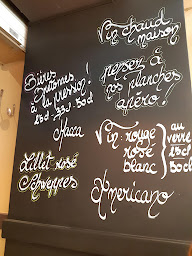 Vin chaud
maison
Bières
Quismes
à la pression !
25cl - 33cl - 50cl
pensez à
vos planches
apéro !
Suze
Vin : rouge
rosé
blanc
au
verre
15cl
50cl
Lillet rosé
Schweppes
Americano